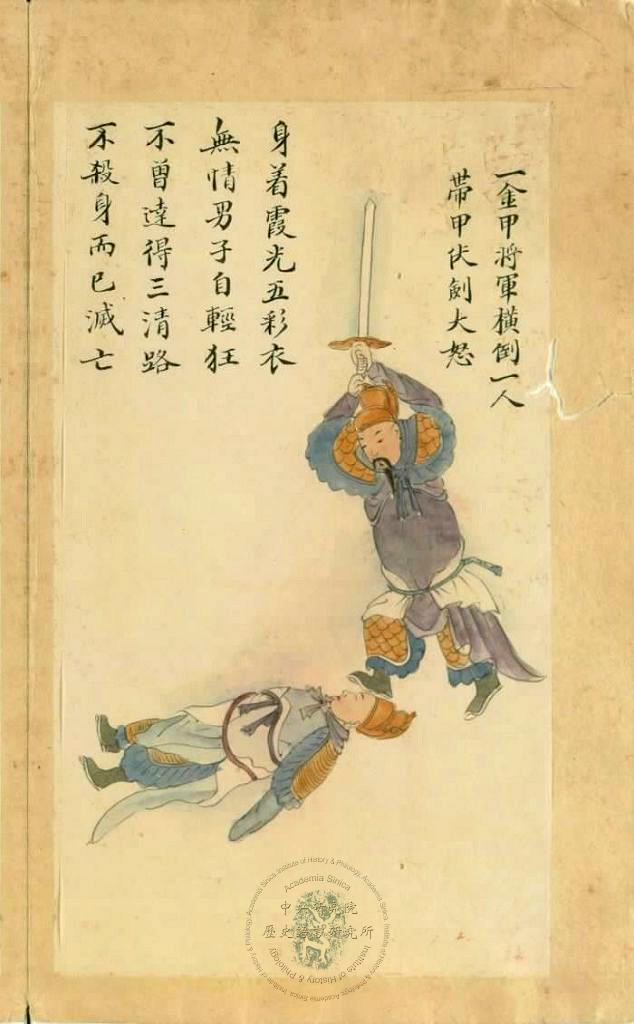 一金甲將軍橫倒一人
帶甲伏劍大怒
身着霞光五彩衣
無情男子自輕狂
不曾達得三清路
不殺身而已滅亡
Academia Sinica
中央研究院
歷史語言研究所
Institute of History & Philology